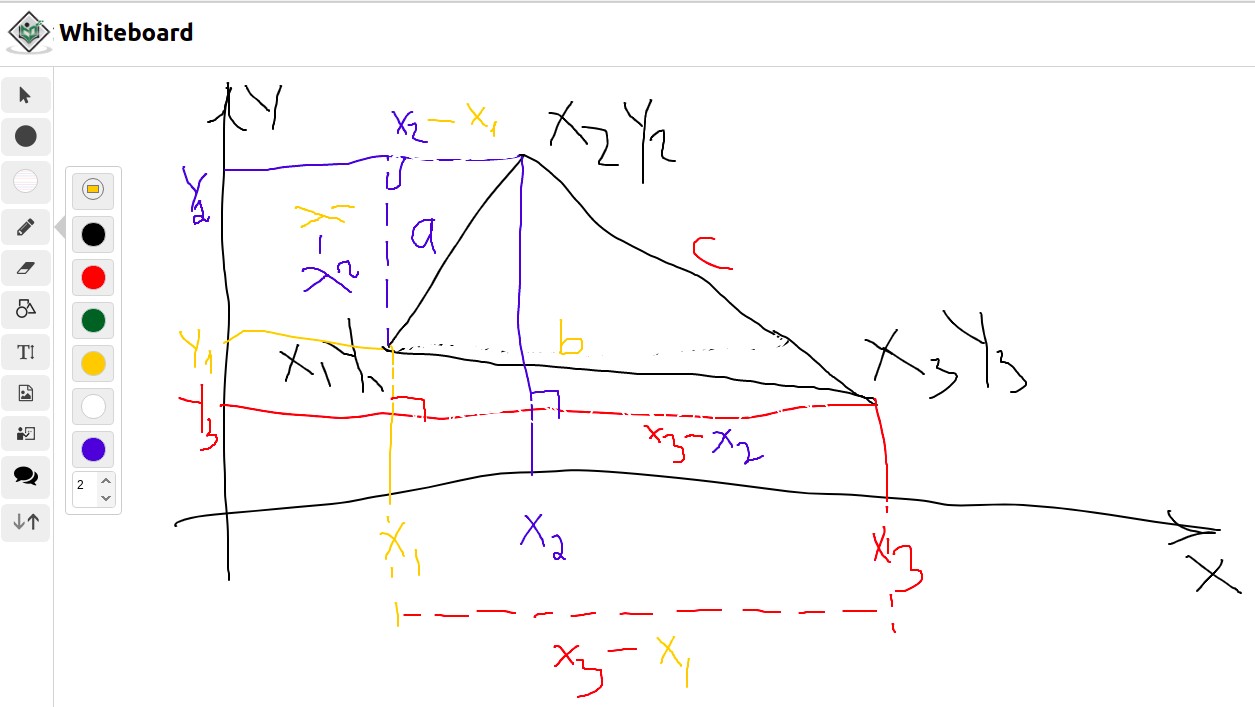 Whiteboard
Y
X2 - X1
X2 Y2
Y2
a
Y1 - Y2
c
Y1
b
X1 Y1
X3 Y3
Y3
X3 - X2
2
TI
X1
X2
X3
X
X3 - X1